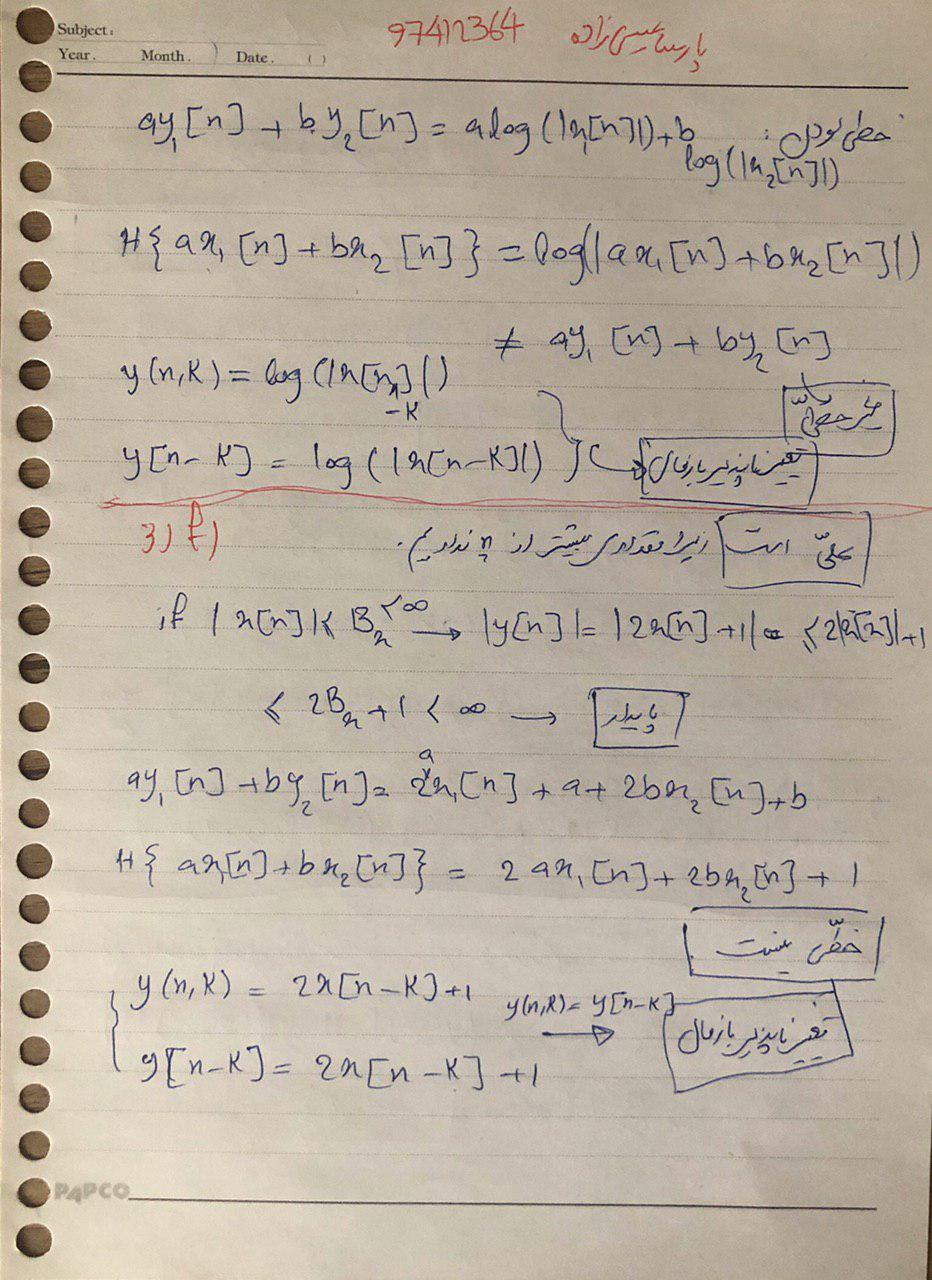 Subject:
Year. Month. Date. ( )
97412364 پارسا عیسی زاده
خطی بودن: ay₁[n] + by₂[n] = a log(|x₁[n]|) + b log(|x₂[n]|)
H{ax₁[n] + bx₂[n]} = log(|ax₁[n] + bx₂[n]|)
≠ ay₁[n] + by₂[n]
y(n,K) = log(|x[n-K]|)
غیرخطی
y[n-K] = log(|x[n-K]|) تغییرناپذیر با زمان
3) f)
علّی است زیرا مقداری بیشتر از n نداریم.
if |x[n]| ≤ Bₓ < ∞ → |y[n]| = |2x[n] + 1| ≤ 2|x[n]| + 1
≤ 2Bₓ + 1 < ∞ → پایدار
ay₁[n] + by₂[n] = 2ax₁[n] + a + 2bx₂[n] + b
H{ax₁[n] + bx₂[n]} = 2ax₁[n] + 2bx₂[n] + 1
خطّی نیست
y(n,K) = 2x[n-K] + 1
y(n,K) = y[n-K] → تغییرناپذیر با زمان
y[n-K] = 2x[n-K] + 1
PAPCO